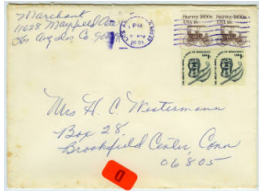 Marchant
11628 Mayfield Ave
Los Angeles Ca
LOS AN
PM
Surrey 1890s
USA 18c
Surrey 1890s
USA 18c
Mrs H. C. Westermann
Box 28
Brookfield Center, Conn
06805
0